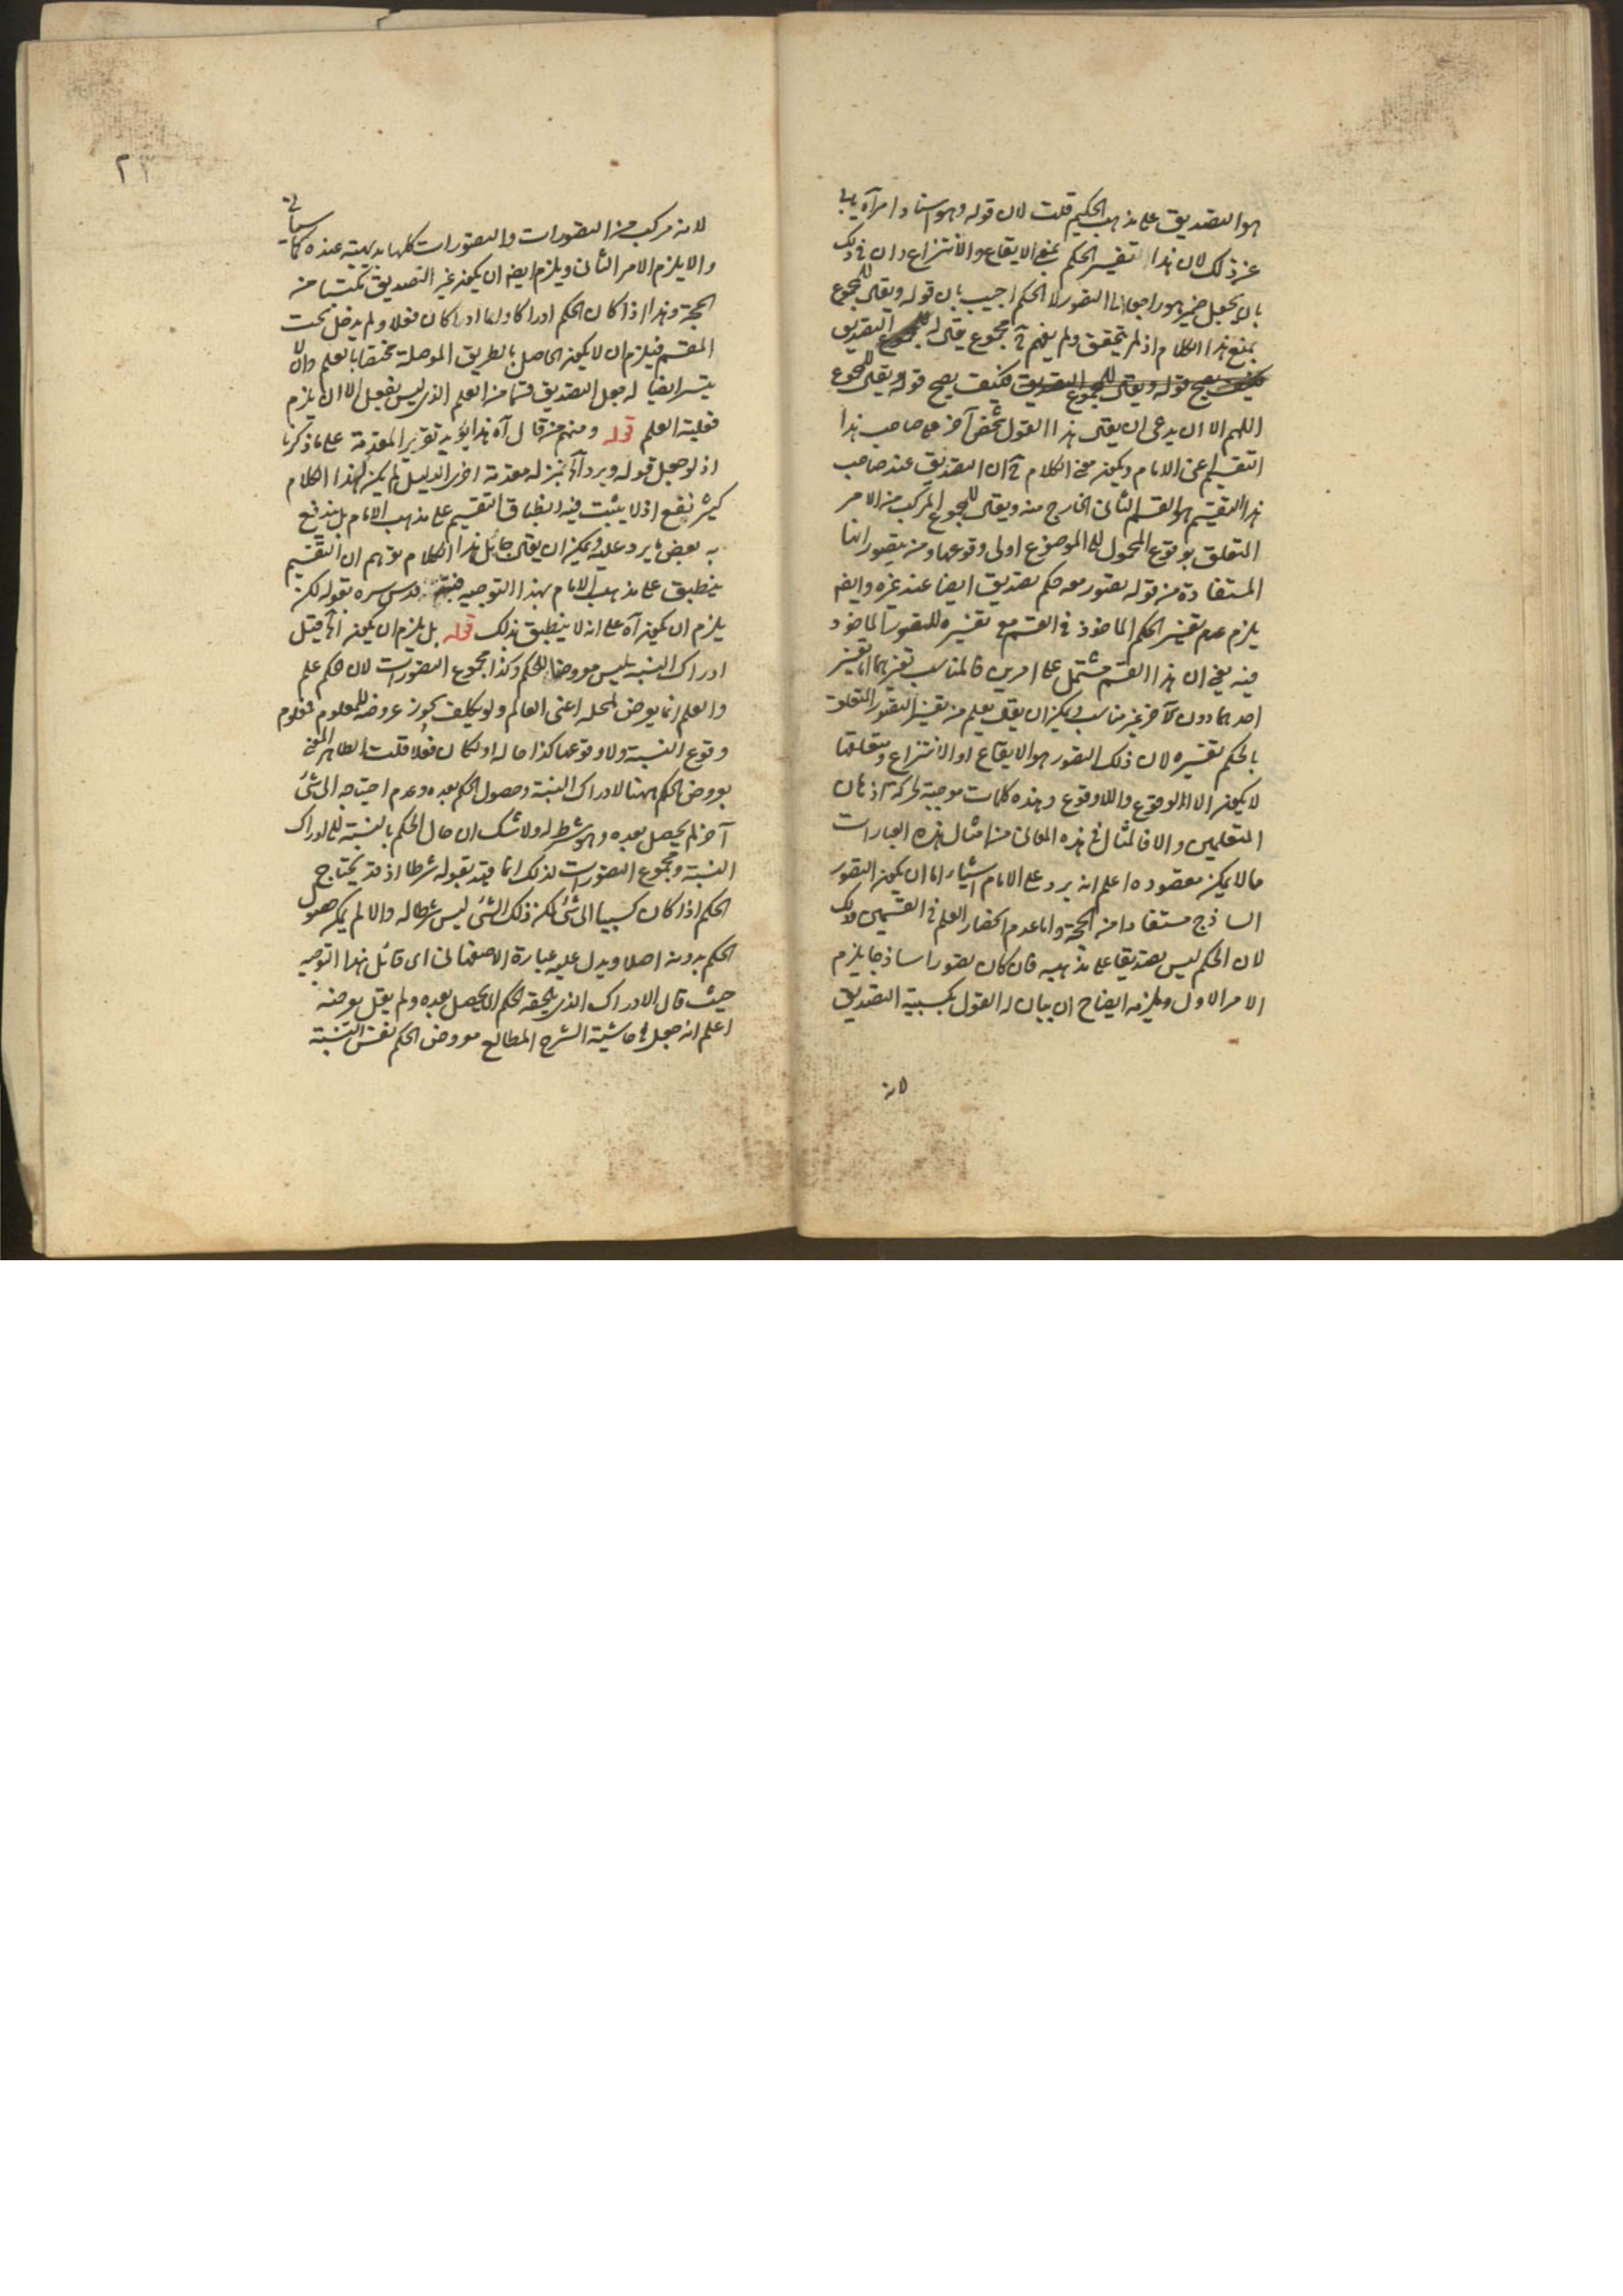 هو التصديق على مذهب الحكيم قلت لان قوله وهو اسناد امر آه يابى
عن ذلك لان هذا تفسير الحكم بمعنى الايقاع والانتزاع وان فى ذلك
بان يجعل ضمير هو راجعا الى التصور لا الحكم اجيب بان قوله ويقال للمجموع
يمنع هذا الكلام اذ لم يتحقق ولم يفهم آه مجموع يقال له التصديق
فكيف يصح قوله ويقال للمجموع التصديق فكيف يصح قوله ويقال للمجموع
اللهم الا ان يدعى ان يقال هذا القول شخص آخر على صاحب هذا
التقسيم اعنى الامام ويكون معنى الكلام آه ان التصديق عند صاحب
هذا التقسيم هو القسم الثانى الخارج منه ويقال للمجموع المركب من الامر
المتعلق بوقوع المحمول للموضوع اولى وقوعها ومن تصوراتها
المستفادة من قوله تصور معه حكم تصديق ايضا عند غيره وايضا
يلزم عدم تفسير الحكم الماخوذ فى القسم مع تفسيره للتصور الماخوذ
فيه يعنى ان هذا القسم مشتمل على امرين فالمناسب تفسيرهما اذ تفسير
احدهما دون الآخر غير مناسب ويمكن ان يقال يعلم من تفسير التصور المتعلق
بالحكم تفسيره لان ذلك التصور هو الايقاع او الانتزاع ومتعلقها
لا يكون الا الوقوع واللاوقوع وهذه كلمات موجبة لحركة اذهان
المتعلمين والا فالمثال فى هذه المعانى من امثال هذه العبارات
مالا يمكن مقصوده اعلم انه يرد على الامام اشياء اما ان يكون التصور
الساذج مستفادا من الحجة واما عدم انحصار العلم فى القسمين وذلك
لان الحكم ليس تصديقا على مذهبه فان كان تصورا ساذجا يلزم
الامر الاول ويلزمه ايضاح ان بيان له القول بكسبية التصديق
لانه
٢٣
لانه مركب من التصورات والتصورات كلها بديهية عنده كما سيأتى
والا يلزم الامر الثانى ويلزم ايضا ان يكون غير التصديق مكتسبا من
الحجة وهذا اذا كان الحكم ادراكا واما اذا كان فعلا ولم يدخل تحت
المقسم فيلزم ان لا يكون الحاصل بالطريق الموصلة مختصا بالعلم وان لا
يتيسر ايضا له جعل التصديق قسما من العلم الذى ليس بفعل الا ان يلزم
فعلية العلم قوله ومنهم من قال آه هذا يؤيد تقرير المقدمة على ما ذكرنا
اذ لو جعل قوله ويرد آه بمنزلة مقدمة اخرى الدليل لم يكن لهذا الكلام
كثير نفع اذ لا يثبت فيه انطباق التقسيم على مذهب الامام بل يندفع
به بعض ما يرد عليه ويمكن ان يقال قائل هذا الكلام توهم ان التقسيم
ينطبق على مذهب الامام بهذا التوجيه فنبه قدس سره بقوله لكن
يلزم ان يكون آه على انه لا ينطبق بذلك قوله بل يلزم ان يكون آه قيل
ادراك النسبة ليس معروضا للحكم وكذا مجموع التصورات لان حكم علم
والعلم انما يعرض لمحله اعنى العالم ولو بكليف يجوز عروضه للمعلوم فمعلوم
وقوع النسبة ولا وقوعها كذا حاله اذا كان فعلا قلت الظاهر المعنى
بعروض الحكم ههنا لادراك النسبة وحصول الحكم بعده وعدم احتياجه الى شئ
آخر لم يحصل بعده وهو شرط له ولا شك ان حال الحكم بالنسبة للادراك
النسبة ومجموع التصورات لذلك انما قيد بقوله شرطا اذ قد يحتاج
الحكم اذا كان كسبيا الى شئ لكن ذلك الشئ ليس شرطا له والا لم يكن حصول
الحكم بدونه اصلا ويدل عليه عبارة الاصفهانى اى قائل هذا التوجيه
حيث قال الادراك الذى يلحقه الحكم اى يحصل بعده ولم يقل يعرضه
اعلم انه جعل فى حاشية الشرح المطالع معروض الحكم نفس النسبة